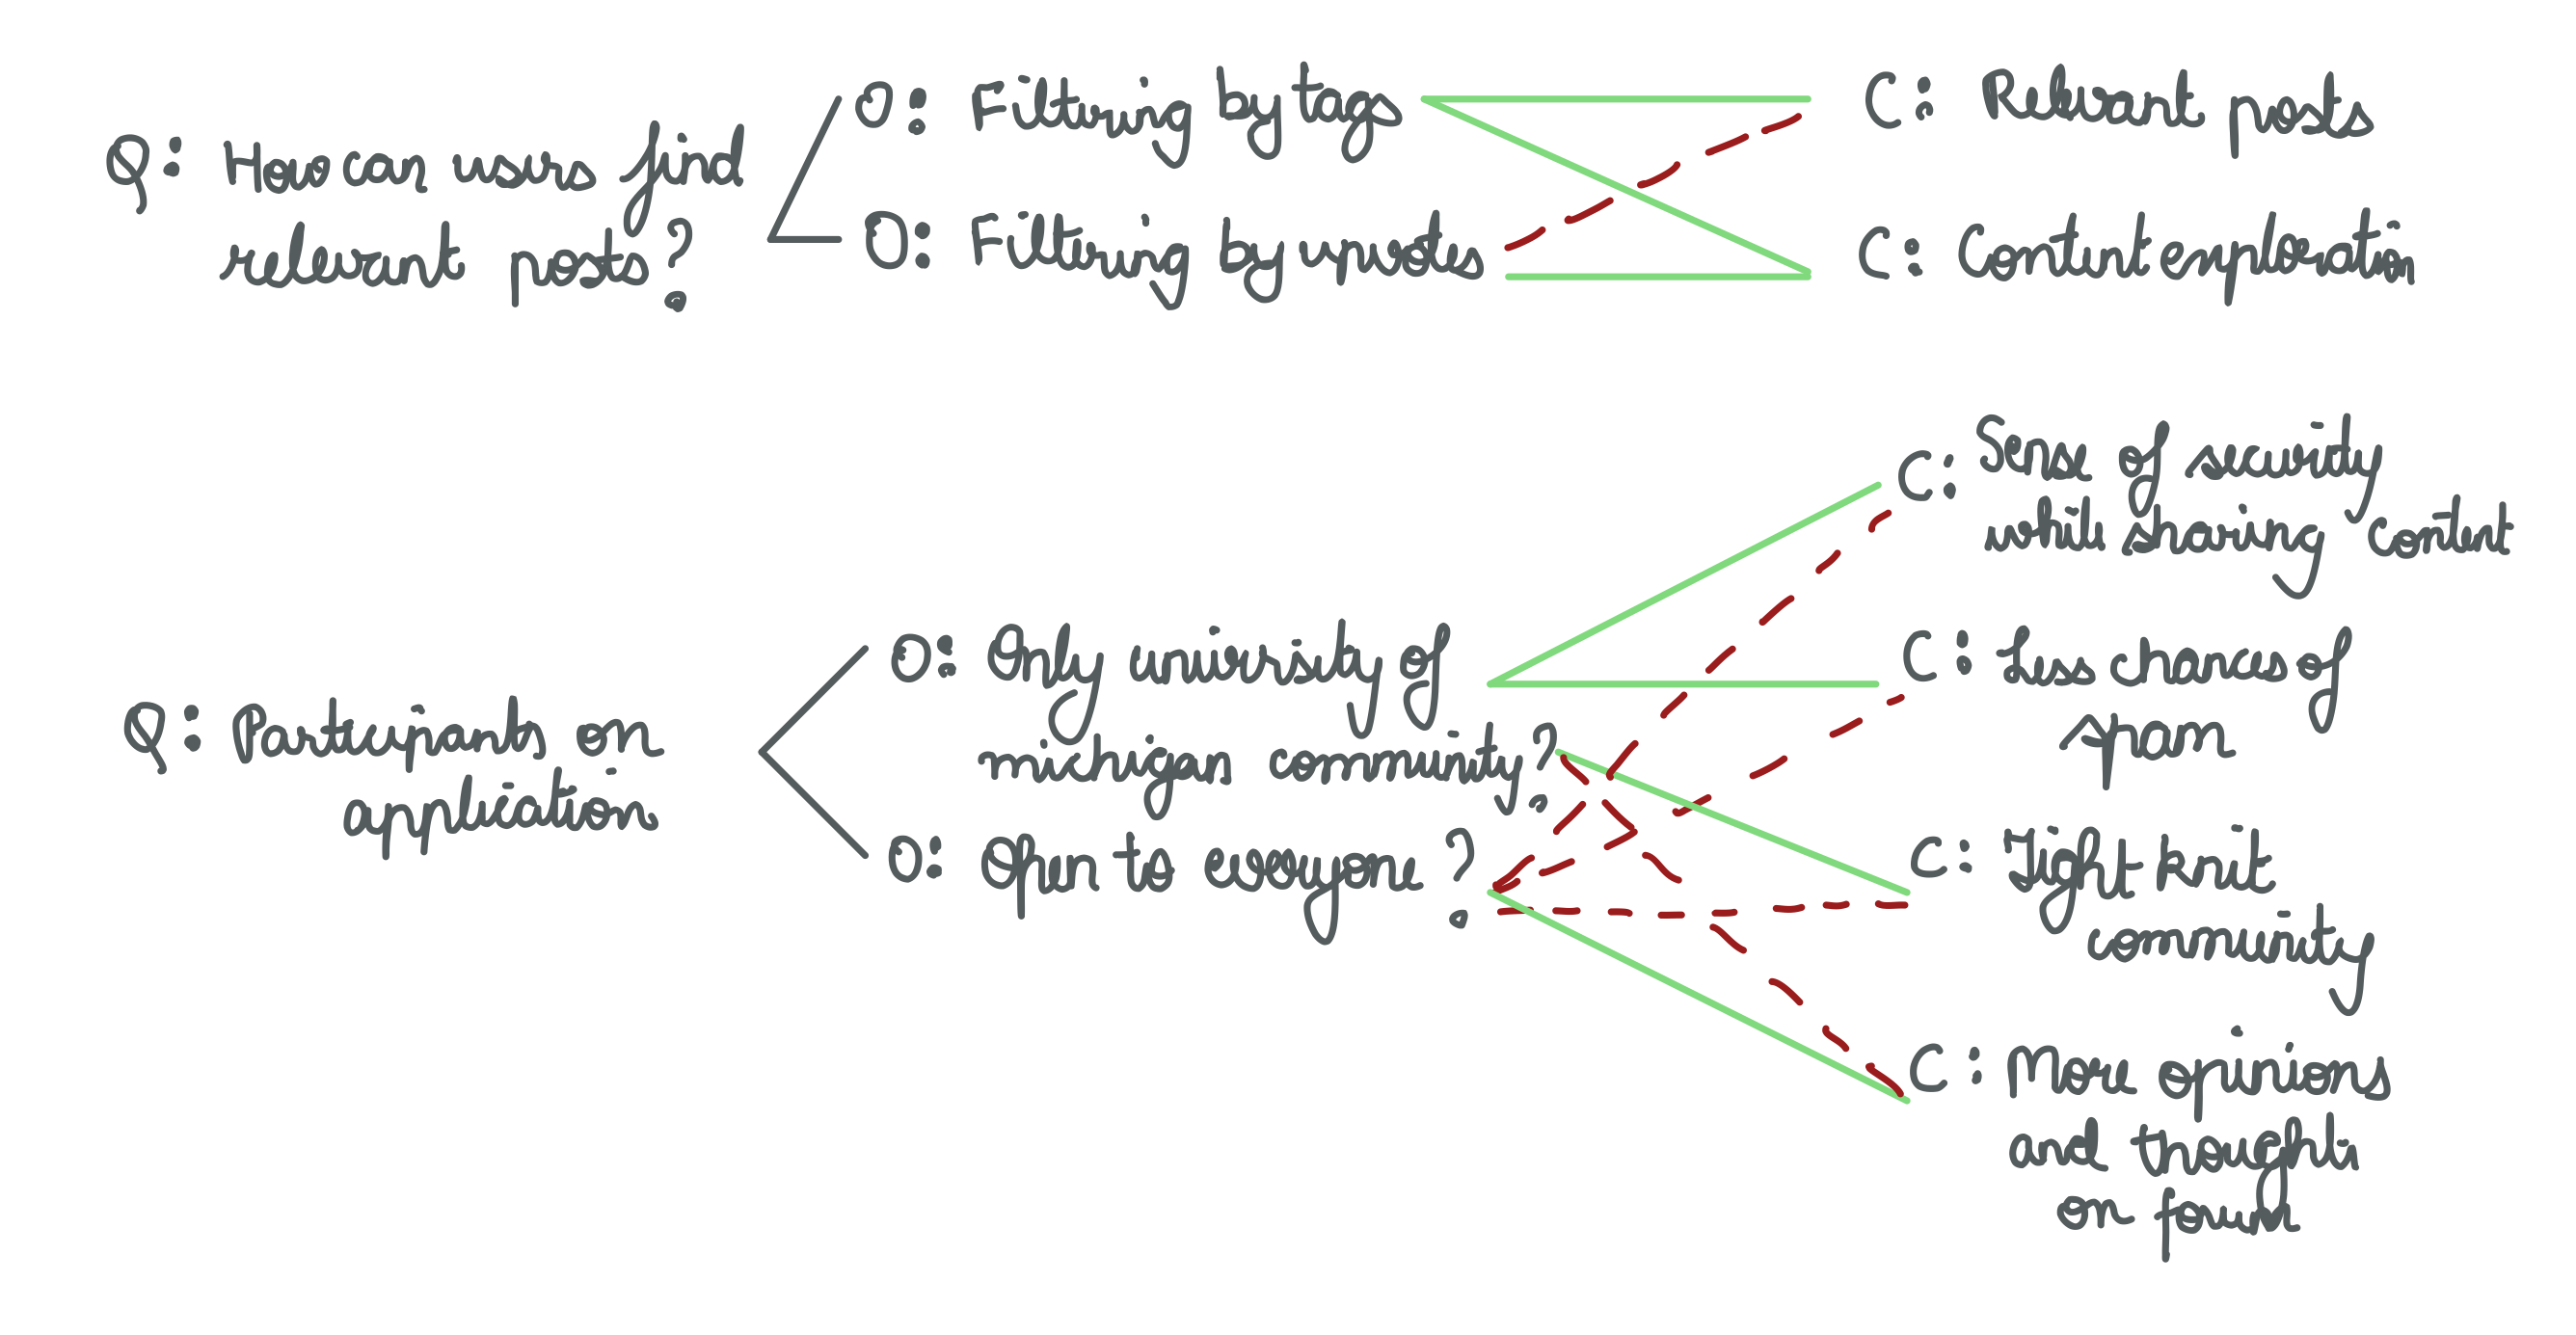 Q: How can users find
relevant posts?
O: Filtering by tags
O: Filtering by upvotes
C: Relevant posts
C: Content exploration
Q: Participants on
application
O: Only university of
michigan community?
O: Open to everyone?
C: Sense of security
while sharing content
C: Less chances of
spam
C: Tight knit
community
C: More opinions
and thoughts
on forum